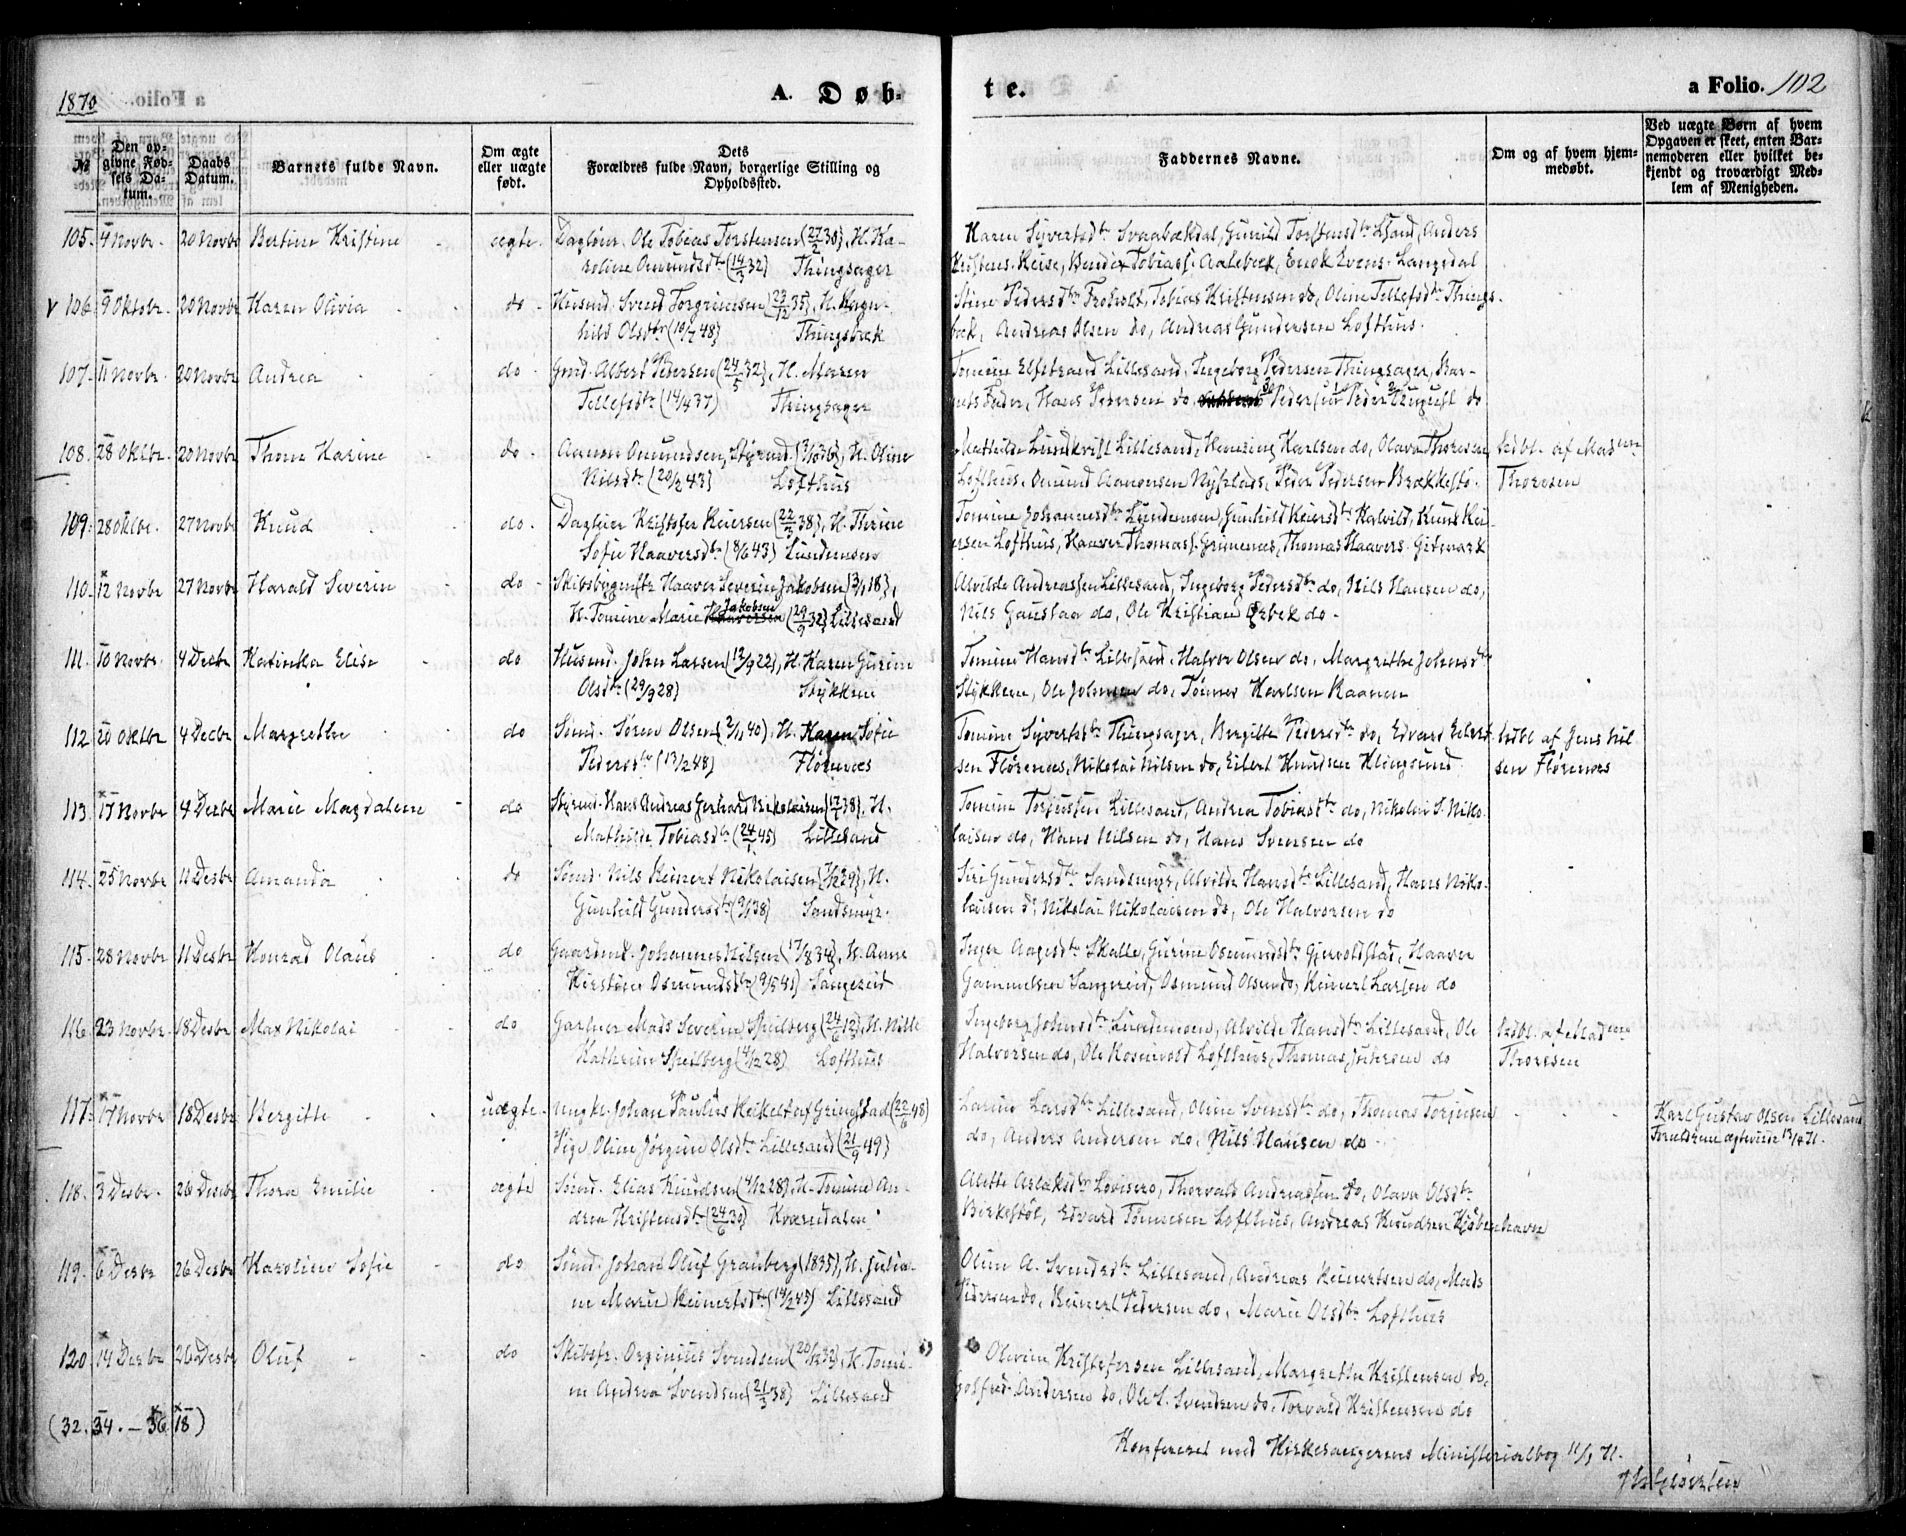 1870
A. Døb-
te.
a Folio. 102
№
Den op-
givne Fød-
sels Da-
tum.
Daabs
Datum.
Barnets fulde Navn.
Om ægte
eller uægte
født.
Dets
Forældres fulde Navn, borgerlige Stilling og
Opholdssted.
Faddernes Navne.
Om og af hvem hjem-
medøbt.
Ved uægte Børn af hvem
Opgaven er skeet, enten Bar-
nemoderen eller hvilket be-
kjendt og troværdigt Med-
lem af Menigheden.
105. 4 Novbr. 20 Novbr Bertine Kristine ægte. Dagleier. Ole Tobias Torstensen (27/2 38), H. Ka-
roline Omundsdtr (14/ 32) Thingsager
Karen Syvertsdtr Svaabækdal, Gunild Torstensdtr Anders
Kristens. Reise, Bendix Tobiass. Aalebæk, Enok Evens. Langedal
106. 9 Oktobr. 20 Novbr Karen Olivia do Husmd. Svend Torgrimsen (22/12 35), H. Ragn-
hild Olsdtr (10/7 48) Thingsbæk
Stine Pedersdtr Froholt, Tobias Kristensen do, Oline Tellefsdtr Things-
bæk, Andreas Olsen do, Andreas Gundersen Lofthus.
107. 11 Novbr. 20 Novbr Andrea do Grmd. Albert Pedersen (24/5 32), H. Maren
Tellefsdtr (14/4 37) Thingsager
Tomine Elfstrand Lillesand, Ingeborg Pedersen Thingsager, Bar-
nets Fader, Hans Pedersen do, Pedersen Peder August do
108. 28 Oktbr. 20 Novbr Thora Karine do. Aanon Omundsen, Styrmd. 36), H. Oline
Nilsdtr (20/2 43) Lofthus
Mathilde Lundkvist Lillesand, Henning Karlsen do, Olava Thoresen
Lofthus, Omund Aanonsen Nyplads, Peder Pedersen Brækkestø.
hdbt. af Madme
Thoresen
109. 28 Oktbr. 27 Novbr Knud do. Dagleier Kristofer Reiersen (22/ 38), H. Thrine
Sofie Haaversdtr (8/6 43) Lundemoen
Tomine Johannesdtr Lundemoen, Gunhild Reiersdtr Kalvild, Knud Rei-
ersen Lofthus, Haaver Thomass. Grimenes, Thomas Haavers. Gitmark
110. 12 Novbr 27 Novbr Harald Severin do Skibsbygmstr Haaver Severin Jakobsen (3/1 18),
H. Tomine Marie Jakobsen (29/9 32) Lillesand
Alvilde Andreassen Lillesand, Ingeborg Pedersdtr do, Nils Hansen do,
Nils Gaustaa do, Ole Kristian Ørbek do.
111. 10 Novbr. 4 Decbr Katinka Elise do Husmd. John Larsen (12/9 22), H. Karen Gurine
Olsdtr (29/9 28) Stykkene
Tomine Hansdtr Lillesand, Halvor Olsen do, Margrethe Johnsdtr
Stykkene, Ole Johnsen do, Tønnes Karlsen Raanen
112 20 Oktbr 4 Decbr Margrethe do Sømd. Søren Olsen (2/11 40), H. Karen Sofie
Pedersdtr (13/2 48) Florenæs
Tomine Syvertsdtr Thingsager, Bergitte Pedersdtr do, Edvard Eilert-
sen Flørenæs, Nikolai Nilsen do, Eilert Knudsen Klingsund
hdbt af Jens Nil-
sen Flørenæs
113 17 Novbr 4 Decbr Marie Magdalene do Styrmd. Hans Andreas Gerhard Nikolaisen (17/ 38), H.
Mathilde Tobiasdtr (24/1 45) Lillesand
Tomine Torjussen Lillesand, Andrea Tobiasdtr do, Nikolai S. Niko-
laisen do, Hans Nilsen do, Hans Svensen do
114. 25 Novbr 11 Desbr Amanda do Sømd. Nils Reinert Nikolaisen ( 29), H.
Gunhild Gundersdtr ( 38) Sandsmyr.
Siri Gundersdtr Sandsmyr, Alvilde Hansdtr Lillesand, Hans Niko-
laisen do, Nikolai Nikolaisen do, Ole Halvorsen do
115. 28 Novbr 11 Desbr Konrad Olaus do Gaardmd. Johannes Nilsen (17/8 34), H. Anne
Kirstine Osmundsdtr (9/5 41) Sangereid
Inger Aagesdtr Skalle, Gurine Osmundsdtr Gjervoldstad, Haaver
Gammelsen Sangereid, Osmund Olsen do, Reinert Larsen do
116. 23 Novbr. 18 Desbr Max Nikolai do Gartner Mads Severin Spilberg (24/6 12), H. Nille
Kathrine Spilberg (4/12 28) Lofthus
Ingeborg Johnsdtr Lundemoen, Alvilde Hansdtr Lillesand, Ole
Halvorsen do, Ole Rosenvold Lofthus, Thomas Juhrsen do
hdbt. af Madme
Thoresen
117. 17 Novbr 18 Desbr Bergitte uægte. Ungkl. Johan Paulus Keikelt af Grimstad (22/6 48)
Pige Oline Jørgine Olsdtr Lillesand (21/9 49)
Larine Larsdtr Lillesand, Oline Svensdtr do, Thomas Torjusen
do, Anders Andersen do, Nils Hansen do
Karl Gustav Olsen Lillesand
Forældrene ægteviede 13/4 71.
118. 3 Desbr. 26 Desbr Thora Emilie ægte Sømd. Elias Knudsen (4/12 28), H. Tomine An-
drea Kristensdtr (24/6 30) Kværndalen
Alette Aslaksdtr Thorvald Andreassen do, Olava Olsdtr
Birkestøl, Edvard Tønnesen Lofthus, Andreas Knudsen Kjøbenhavn
119. 6 Desbr 26 Desbr Karoline Sofie do Sømd. Johan Oluf Granberg (1835), H. Julia-
ne Marie Reinertsdtr (14/2 45) Lillesand
Oline A. Svendsdtr Lillesand, Andreas Reinertsen do, Mads
Pedersen do, Reinert Pedersen do, Marie Olsdtr Lofthus
120 14 Desbr 26 Desbr Oluf do Skibsfr. Orginius Svendsen (20/12 32), H. Tomi-
ne Andrea Svendsen (21/3 38) Lillesand
Olevine Kristofersen Lillesand, Margrethe Kristensen do,
Andersen do, Ole S. Svendsen do, Torvald Kristensen do
(32. 34. – 36 18)
Konfereret med Kirkesangerens Ministerialbog 11/1 71.